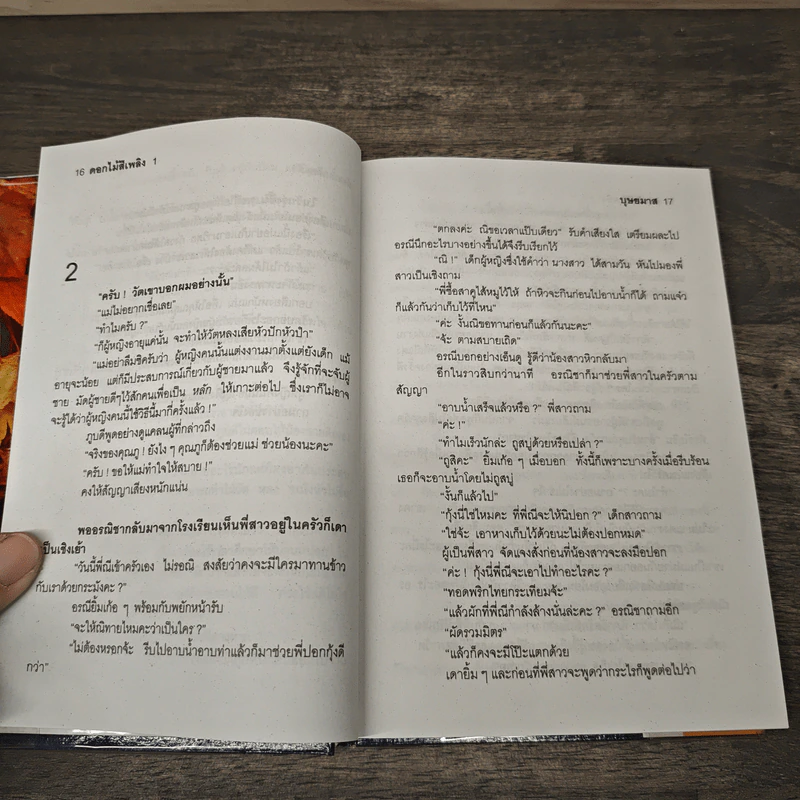 16 ดอกไม้สีเพลิง 1
2
"ครับ ! วัตเขาบอกผมอย่างนั้น"
"แม่ไม่อยากเชื่อเลย"
"ทำไมครับ ?"
"ก็ผู้หญิงอายุแค่นั้น จะทำให้วัตหลงเสียหัวปักหัวปำ"
"แม่อย่าลืมซิครับว่า ผู้หญิงคนนั้นแต่งงานมาตั้งแต่ยังเด็ก แม้
อายุจะน้อย แต่ก็มีประสบการณ์เกี่ยวกับผู้ชายมาแล้ว จึงรู้จักที่จะจับผู้
ชาย มัดผู้ชายดีๆไว้สักคนเพื่อเป็น หลัก ให้เกาะต่อไป ซึ่งเราก็ไม่อาจ
จะรู้ได้ว่าผู้หญิงคนนี้ใช้วิธีนี้มากี่ครั้งแล้ว !"
ภูบดีพูดอย่างดูแคลนผู้ที่กล่าวถึง
"จริงของคุณภู ! ยังไง ๆ คุณภูก็ต้องช่วยแม่ ช่วยน้องนะคะ"
"ครับ ! ขอให้แม่ทำใจให้สบาย !"
คงให้สัญญาเสียงหนักแน่น
พออรณิชากลับมาจากโรงเรียนเห็นพี่สาวอยู่ในครัวก็เดา
เป็นเชิงเย้า
"วันนี้พี่ณีเข้าครัวเอง ไม่รอณิ สงสัยว่าคงจะมีใครมาทานข้าว
กับเราด้วยกระมังคะ ?"
อรณียิ้มเก้อ ๆ พร้อมกับพยักหน้ารับ
"จะให้ณิทายไหมคะว่าเป็นใคร ?"
"ไม่ต้องหรอกจ้ะ รีบไปอาบน้ำอาบท่าแล้วก็มาช่วยพี่ปอกกุ้งดี
กว่า"
บุษยมาส 17
"ตกลงค่ะ ณิขอเวลาแป๊บเดียว" รับคำเสียงใส เตรียมผละไป
อรณีนึกอะไรบางอย่างขึ้นได้จึงรีบเรียกไว้
"ณิ !" เด็กผู้หญิงซึ่งใช้คำว่า นางสาว ได้สามวัน หันไปมองพี่
สาวเป็นเชิงถาม
"พี่ซื้อสาคูไส้หมูไว้ให้ ถ้าหิวจะกินก่อนไปอาบน้ำก็ได้ ถามแจ๋ว
ก็แล้วกันว่าเก็บไว้ที่ไหน"
"ค่ะ งั้นณิขอทานก่อนก็แล้วกันนะคะ"
"จ้ะ ตามสบายเถิด"
อรณีบอกอย่างเอ็นดู รู้ดีว่าน้องสาวหิวกลับมา
อีกในราวสิบกว่านาที อรณิชาก็มาช่วยพี่สาวในครัวตาม
สัญญา
"อาบน้ำเสร็จแล้วหรือ ?" พี่สาวถาม
"ค่ะ !"
"ทำไมเร็วนักล่ะ ถูสบู่ด้วยหรือเปล่า ?"
"ถูสิคะ" ยิ้มเก้อ ๆ เมื่อบอก ทั้งนี้ก็เพราะบางครั้งเมื่อรีบร้อน
เธอก็จะอาบน้ำโดยไม่ถูสบู่
"งั้นก็แล้วไป"
"กุ้งนี่ใช่ไหมคะ ที่พี่ณีจะให้นิปอก ?" เด็กสาวถาม
"ใช่จ้ะ เอาหางเก็บไว้ด้วยนะไม่ต้องปอกหมด"
ผู้เป็นพี่สาว จัดแจงสั่งก่อนที่น้องสาวจะลงมือปอก
"ค่ะ ! กุ้งนี่พี่ณีจะเอาไปทำอะไรคะ ?"
"ทอดพริกไทยกระเทียมจ้ะ"
"แล้วผักที่พี่ณีกำลังล้างนั่นล่ะคะ ?" อรณิชาถามอีก
"ผัดรวมมิตร"
"แล้วก็คงจะมีโป๊ะแตกด้วย
เดายิ้ม ๆ และก่อนที่พี่สาวจะพูดว่ากระไรก็พูดต่อไปว่า